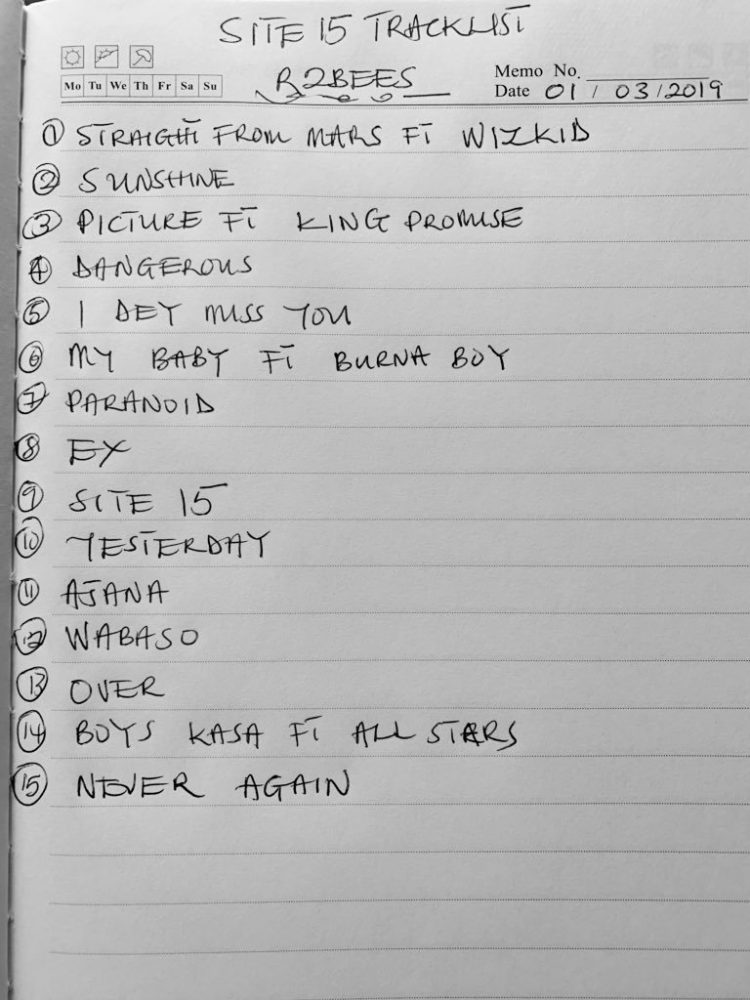 SITE 15 TRACKLIST
R2BEES
Mo Tu We Th Fr Sa Su
Memo No.
Date 01 / 03 / 2019
① STRAIGHT FROM MARS FT WIZKID
② SUNSHINE
③ PICTURE FT KING PROMISE
④ DANGEROUS
⑤ I DEY MISS YOU
⑥ MY BABY FT BURNA BOY
⑦ PARANOID
⑧ EX
⑨ SITE 15
⑩ YESTERDAY
⑪ AJANA
⑫ WABASO
⑬ OVER
⑭ BOYS KASA FT ALL STARS
⑮ NEVER AGAIN